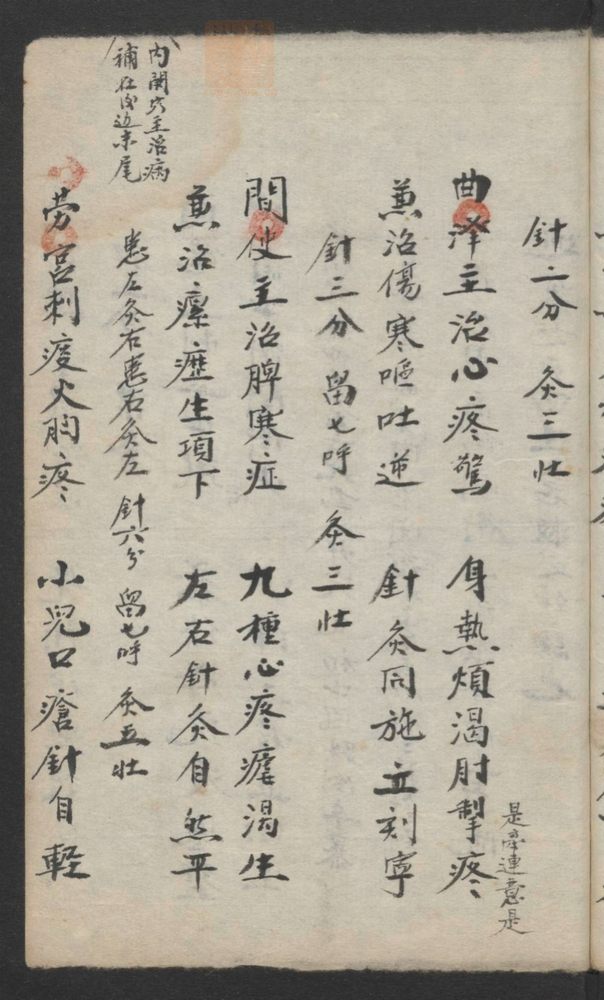 針二分 灸三壯
曲泽主治心疼驚 身熱煩渴肘掣疼
是牵連意是
兼治傷寒嘔吐逆 針灸同施立刻寧
針三分 留七呼 灸三壯
間使主治脾寒症 九種心疼瘧渴生
兼治瘰癧生項下 左右針灸自然平
患左灸右患右灸左 針六分 留七呼 灸五壯
內関穴主治病
補在後边末尾
劳宮刺痰火胸疼 小兒口瘡針自軽